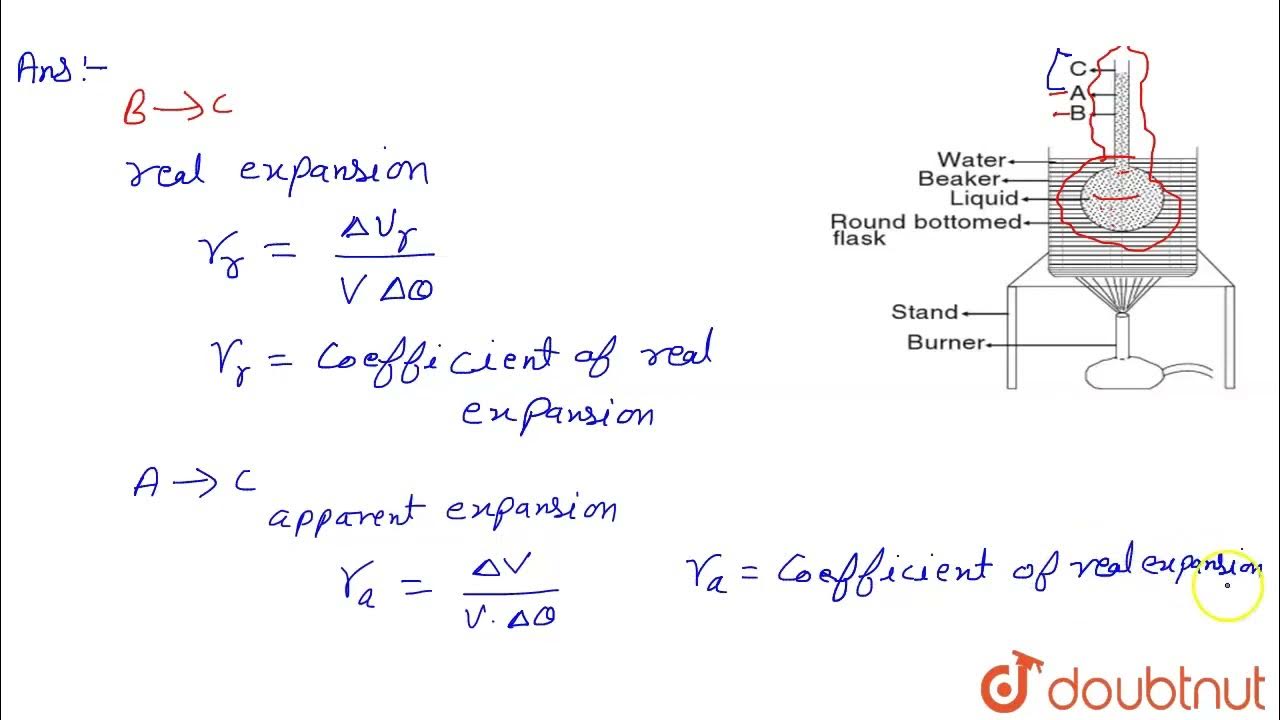 Ans :-
B → C
real expansion
γr = ΔVr / V Δθ
γr = Coefficient of real
expansion
A → C
apparent expansion
γa = ΔV / V. Δθ
γa = Coefficient of real expansion
C
A
B
Water
Beaker
Liquid
Round bottomed
flask
Stand
Burner
doubtnut